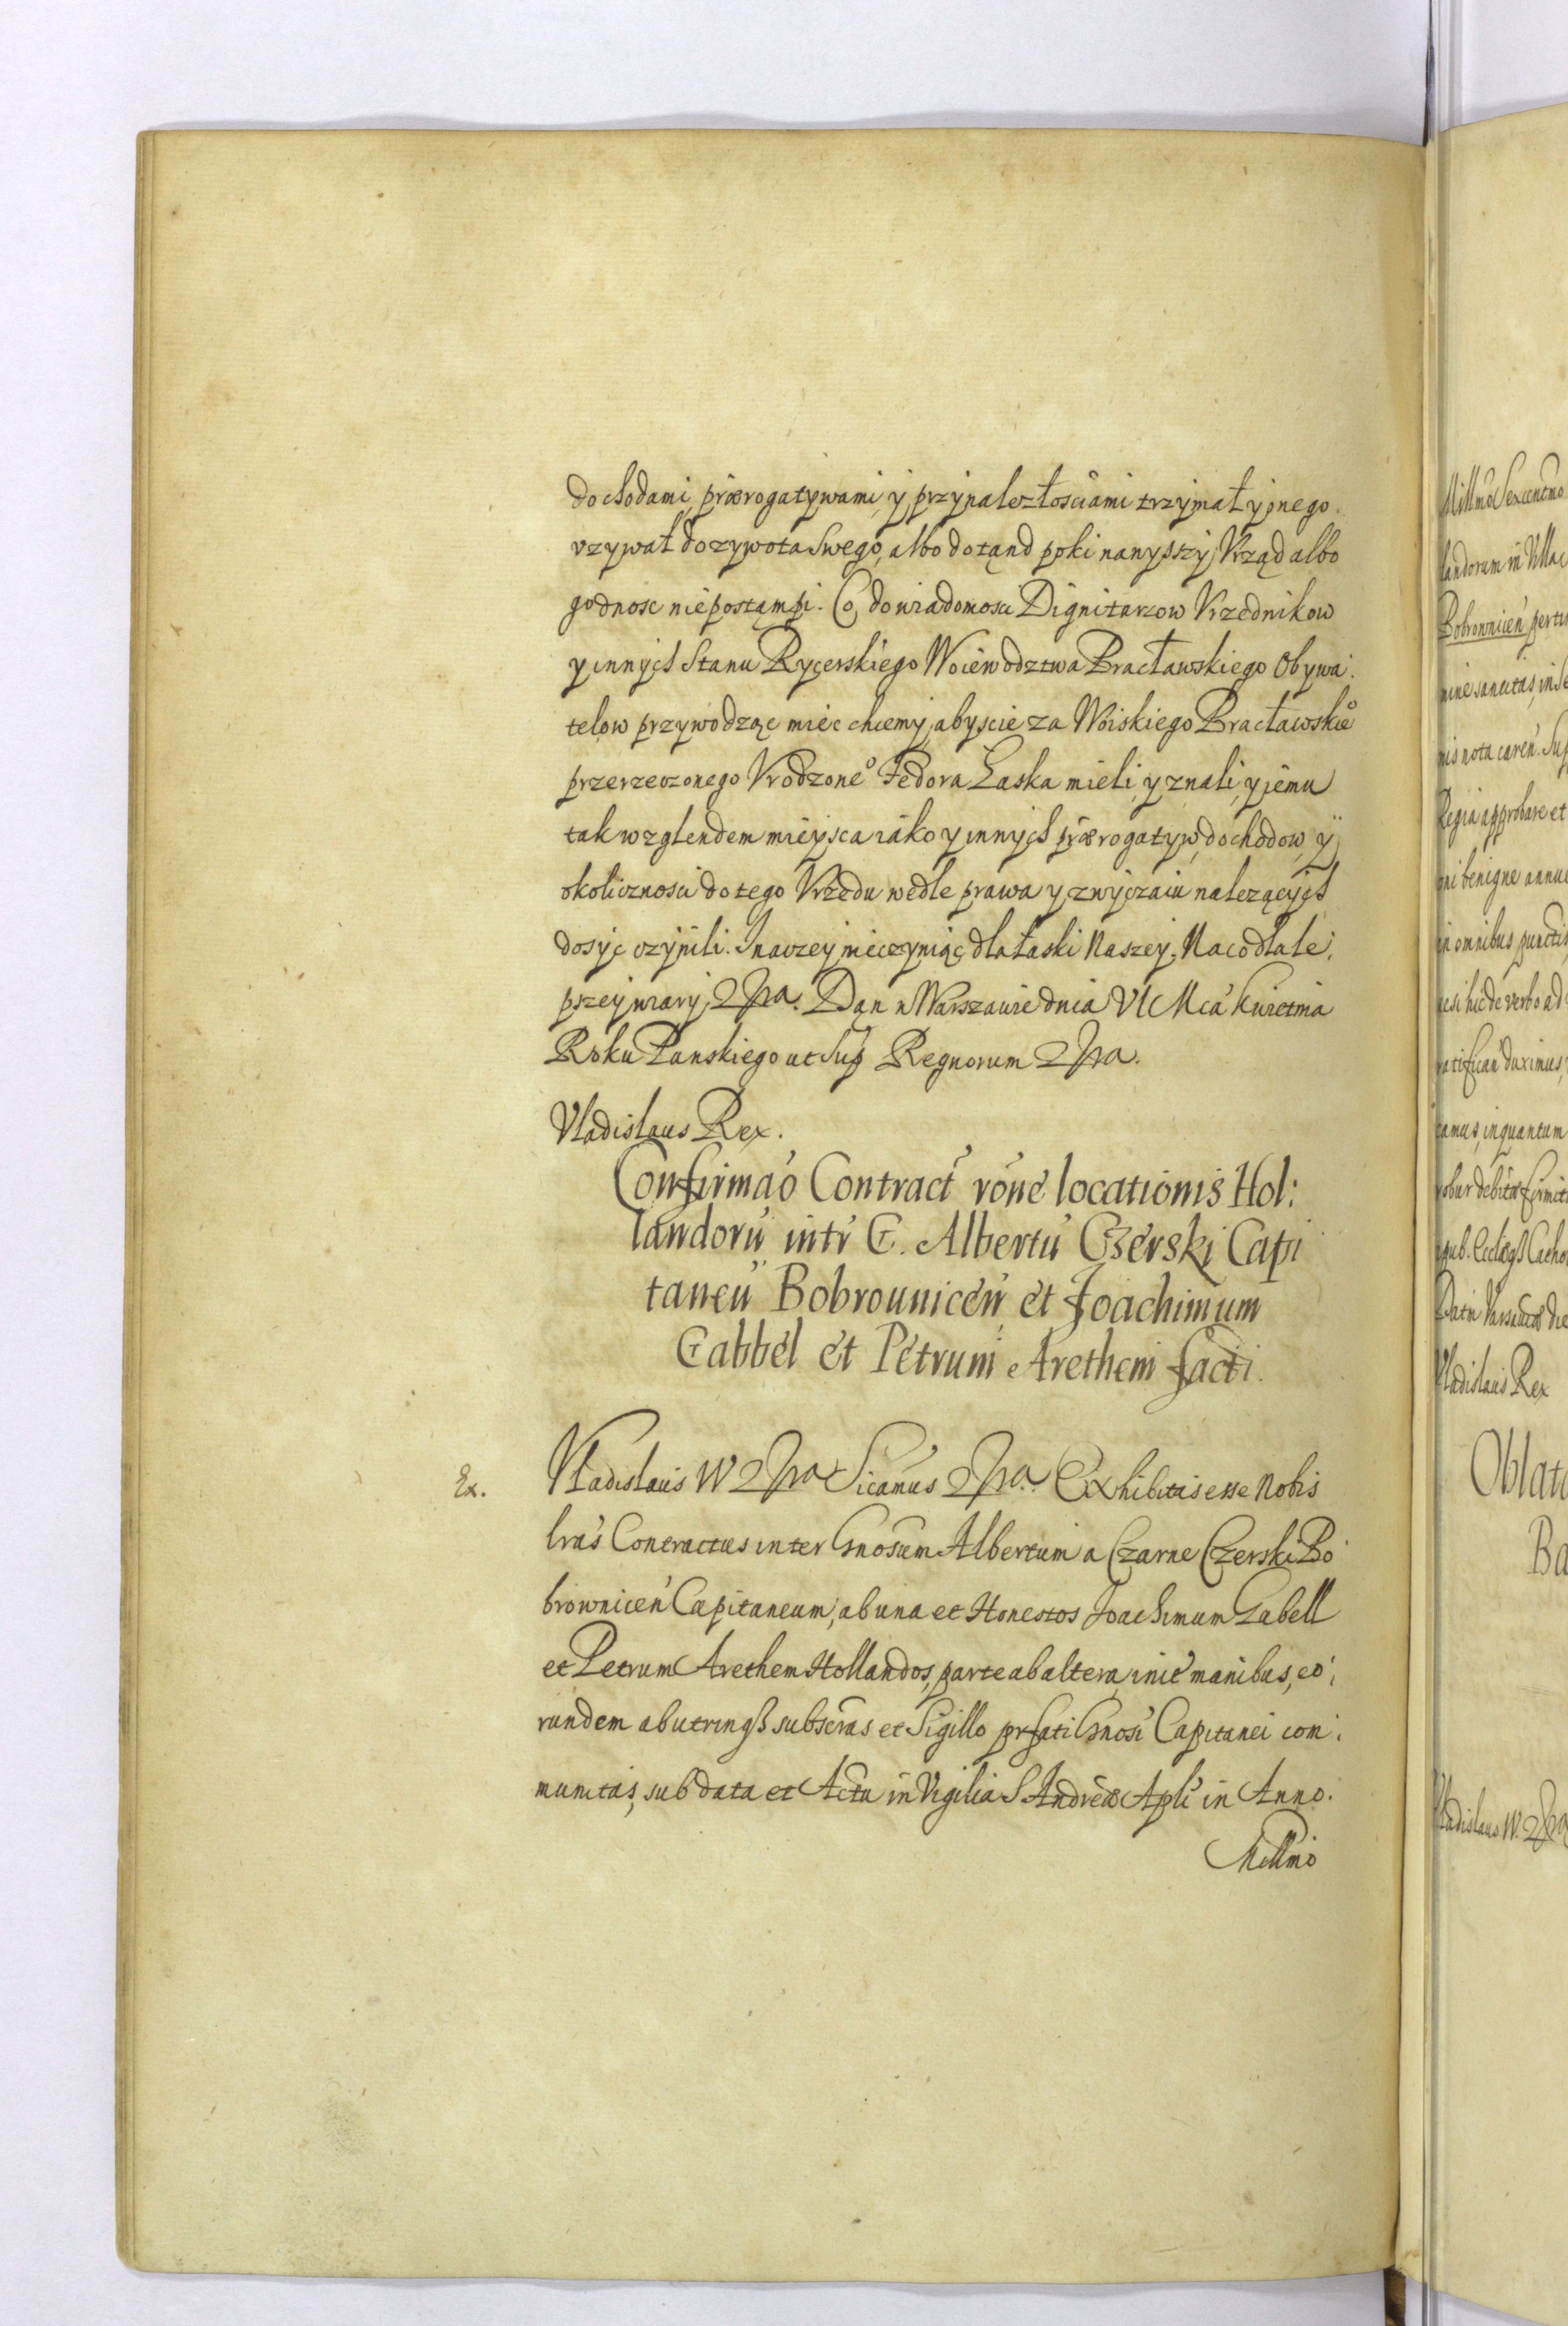 dochodami, prærogatywami, y przynalezłosciami trzymał y onego
vzywał do zywota swego, albo dotąnd poki na wyszszy Vrząd albo
godnosc nie postąmpi. Co, do wiadomosci Dignitarzow Vrzednikow
y innych Stanu Rycerskiego Woiewodztwa Bracławskiego Obywa:
telow przywodząc miec chcemy, abyscie za Woiskiego Bracławskie͛o
przerzeczonego Vrodzone͛o Fedora Łaska mieli, y znali, y jemu
tak wzglendem mieysca iako y innych prærogatyw, dochodow, y
okolicznosci do tego Vrzędu wedle prawa y zwyczaiu nalezących
dosyc vczynili. Inaczey nieczyniąc dla łaski Naszey. Na co dla le:
pszey wiary 2pra. Dąn w Warszawie dnia VI Mca Kwietnia
Roku Panskiego ut Sup Regnorum 2pra.
Vladislaus Rex.
Confirmao Contract rone locationis Hol:
landoru intr G. Albertu Czerski Capi
taneu Bobrouniceń et Joachimum
Gabbel et Petrum Arethem facti.
Ex. Vladislaus IV 2pra Sicamus 2pra. Exhibitas esse Nobis
lras Contractus inter Gnosum Albertum a Czarne Czerski Bo
browniceń Capitaneum, ab una et Honestos Joachimum Gabell
et Petrum Arethem Hollandos, parte ab altera, init manibus, eo:
rundem ab utrinqß subscras et Sigillo prfati Gnosi Capitanei com:
munitas, sub data et Actu in Vigilia S Andreæ Apli in Anno.
Millmo
Millmo Sexcentmo
landorum in Villa
Bobrowniceń perti
nis nota careń. Sup
Regia approbare et
ni benigne annue
in omnibus punctis
ac si hic de verbo ad
ratificań duximus
amus, inquantum
robur debitæ firmit
Vladislaus Rex
Oblat
Ba
Vladislaus IV. 2pra